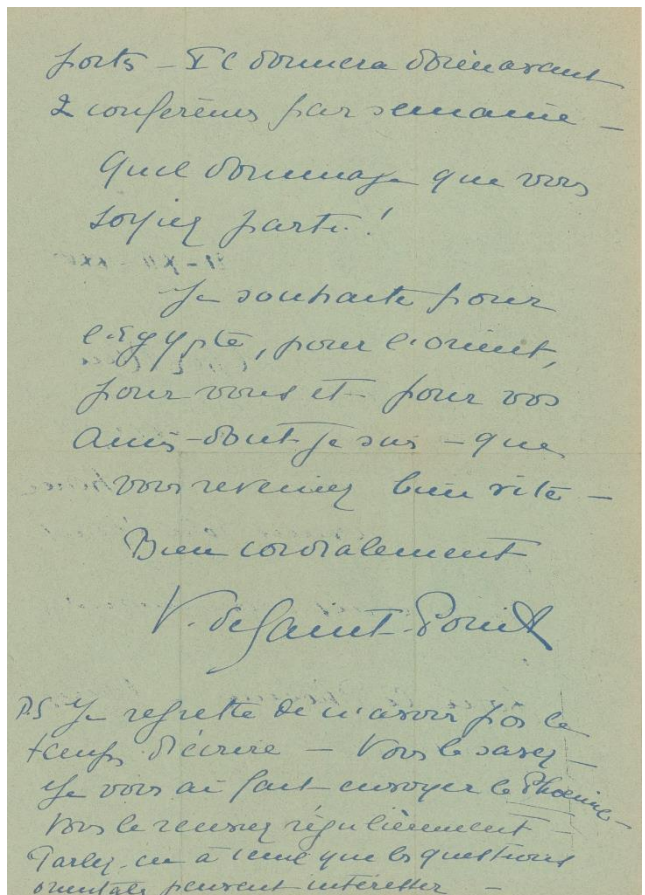 forts – Il donnera dorénavant
2 conférences par semaine –
Quel dommage que vous
soyiez parti !
Je souhaite pour
l'Égypte, pour l'orient,
pour vous et pour vos
amis – dont je suis – que
vous reveniez bien vite –
Bien cordialement
V. de Saint-Point
P.S Je regrette de n'avoir pas le
temps d'écrire – Vous le savez –
Je vous ai fait envoyer le Phoenix –
Vous le recevrez régulièrement –
Parlez-en à ceux que les questions
orientales peuvent intéresser –